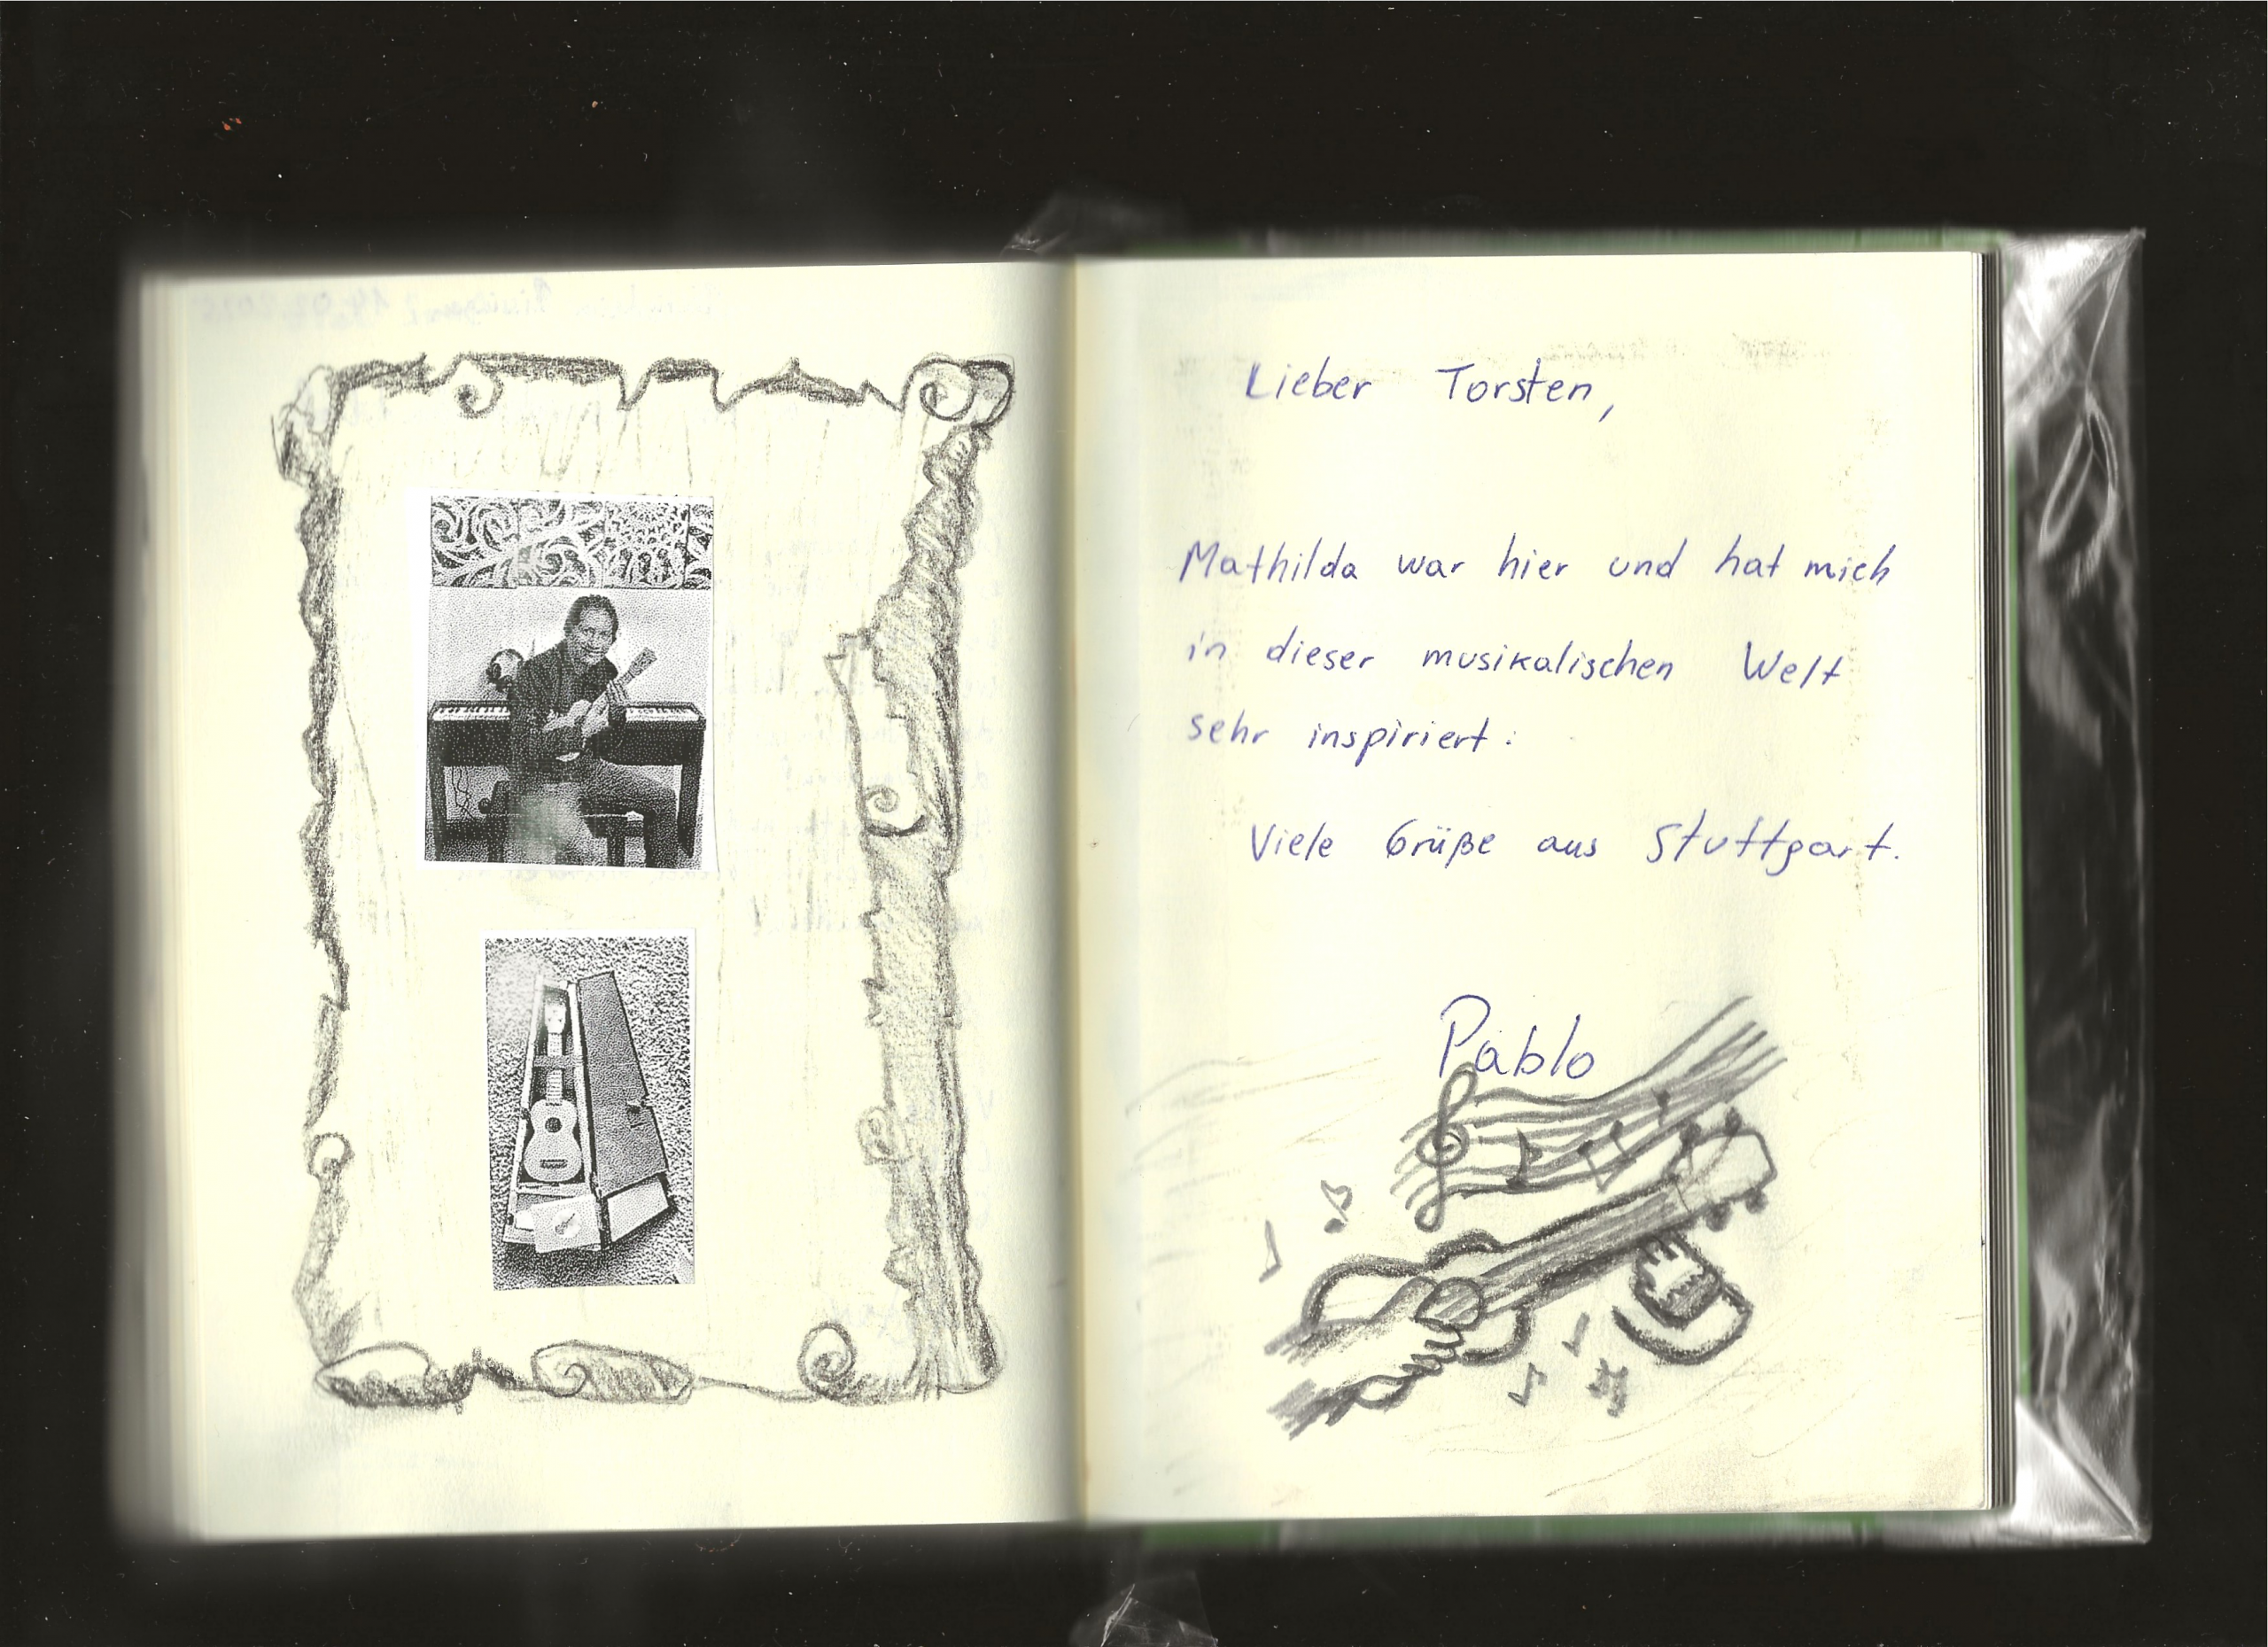 Lieber Torsten,
Mathilda war hier und hat mich
in dieser musikalischen Welt
sehr inspiriert.
Viele Grüße aus Stuttgart.
Pablo